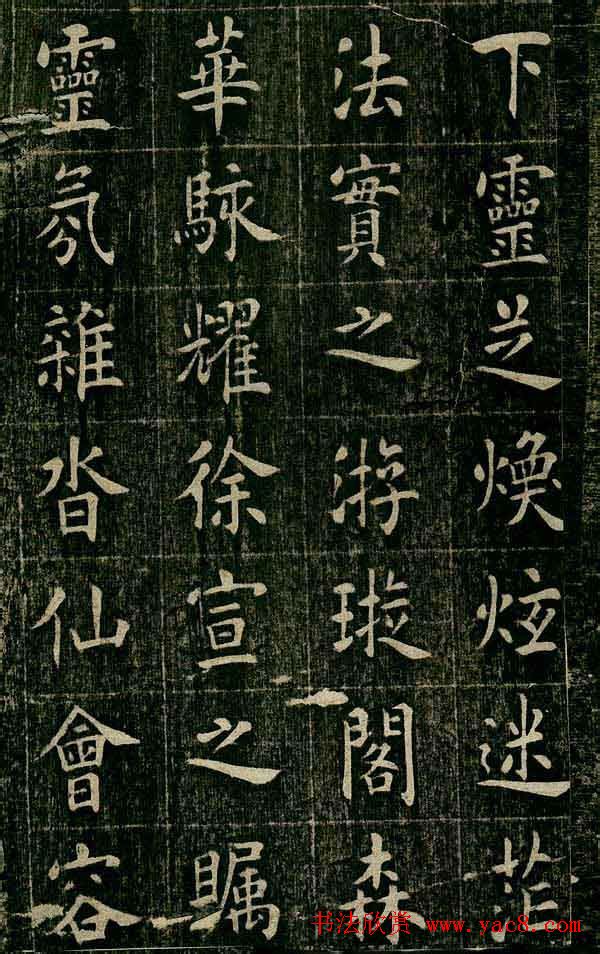 下靈芝煥炫迷
法實之游璇閣森
華耀徐宣之矚
靈氛雜沓仙會容
书法欣赏 www.yac8.com